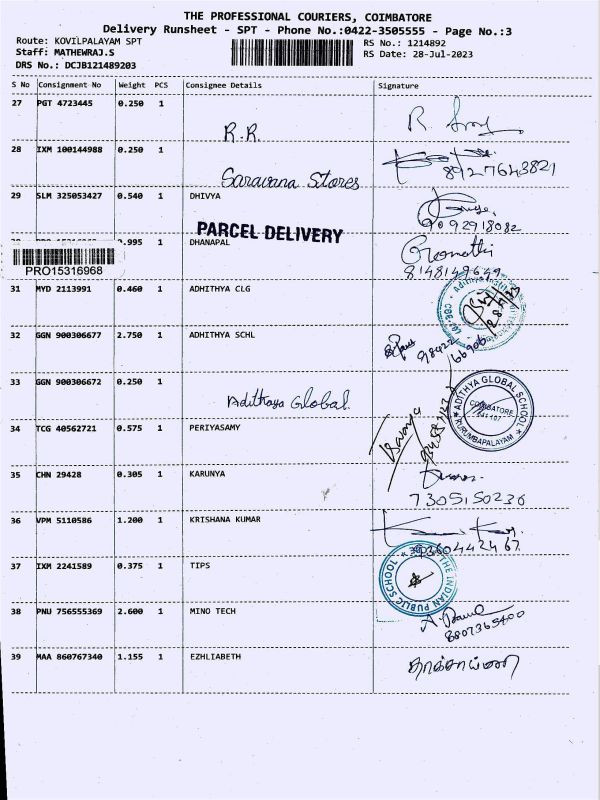 THE PROFESSIONAL COURIERS, COIMBATORE
Delivery Runsheet - SPT - Phone No.:0422-3505555 - Page No.:3
Route: KOVILPALAYAM SPT
RS No.: 1214892
Staff: MATHEWRAJ.S
RS Date: 28-Jul-2023
DRS No.: DCJB121489203
S No Consignment No Weight PCS Consignee Details Signature
27 PGT 4723445 0.250 1 R.R
28 IXM 100144988 0.250 1 Saravana Stores 8927643821
29 SLM 325053427 0.540 1 DHIVYA 9092918082
PARCEL DELIVERY
0.995 1 DHANAPAL Gomathi 8148149649
PRO15316968
31 MYD 2113991 0.460 1 ADHITHYA CLG
32 GGN 900306677 2.750 1 ADHITHYA SCHL
33 GGN 900306672 0.250 1 Adithaya Global
ADITHYA GLOBAL SCHOOL
COIMBATORE
641 107
KURUMBAPALAYAM
34 TCG 40562721 0.575 1 PERIYASAMY
35 CHN 29428 0.305 1 KARUNYA
7305150236
36 VPM 5110586 1.200 1 KRISHANA KUMAR
9360442467
37 IXM 2241589 0.375 1 TIPS
THE INDIAN PUBLIC SCHOOL
38 PNU 756555369 2.600 1 MINO TECH
8807365400
39 MAA 860767340 1.155 1 EZHLIABETH